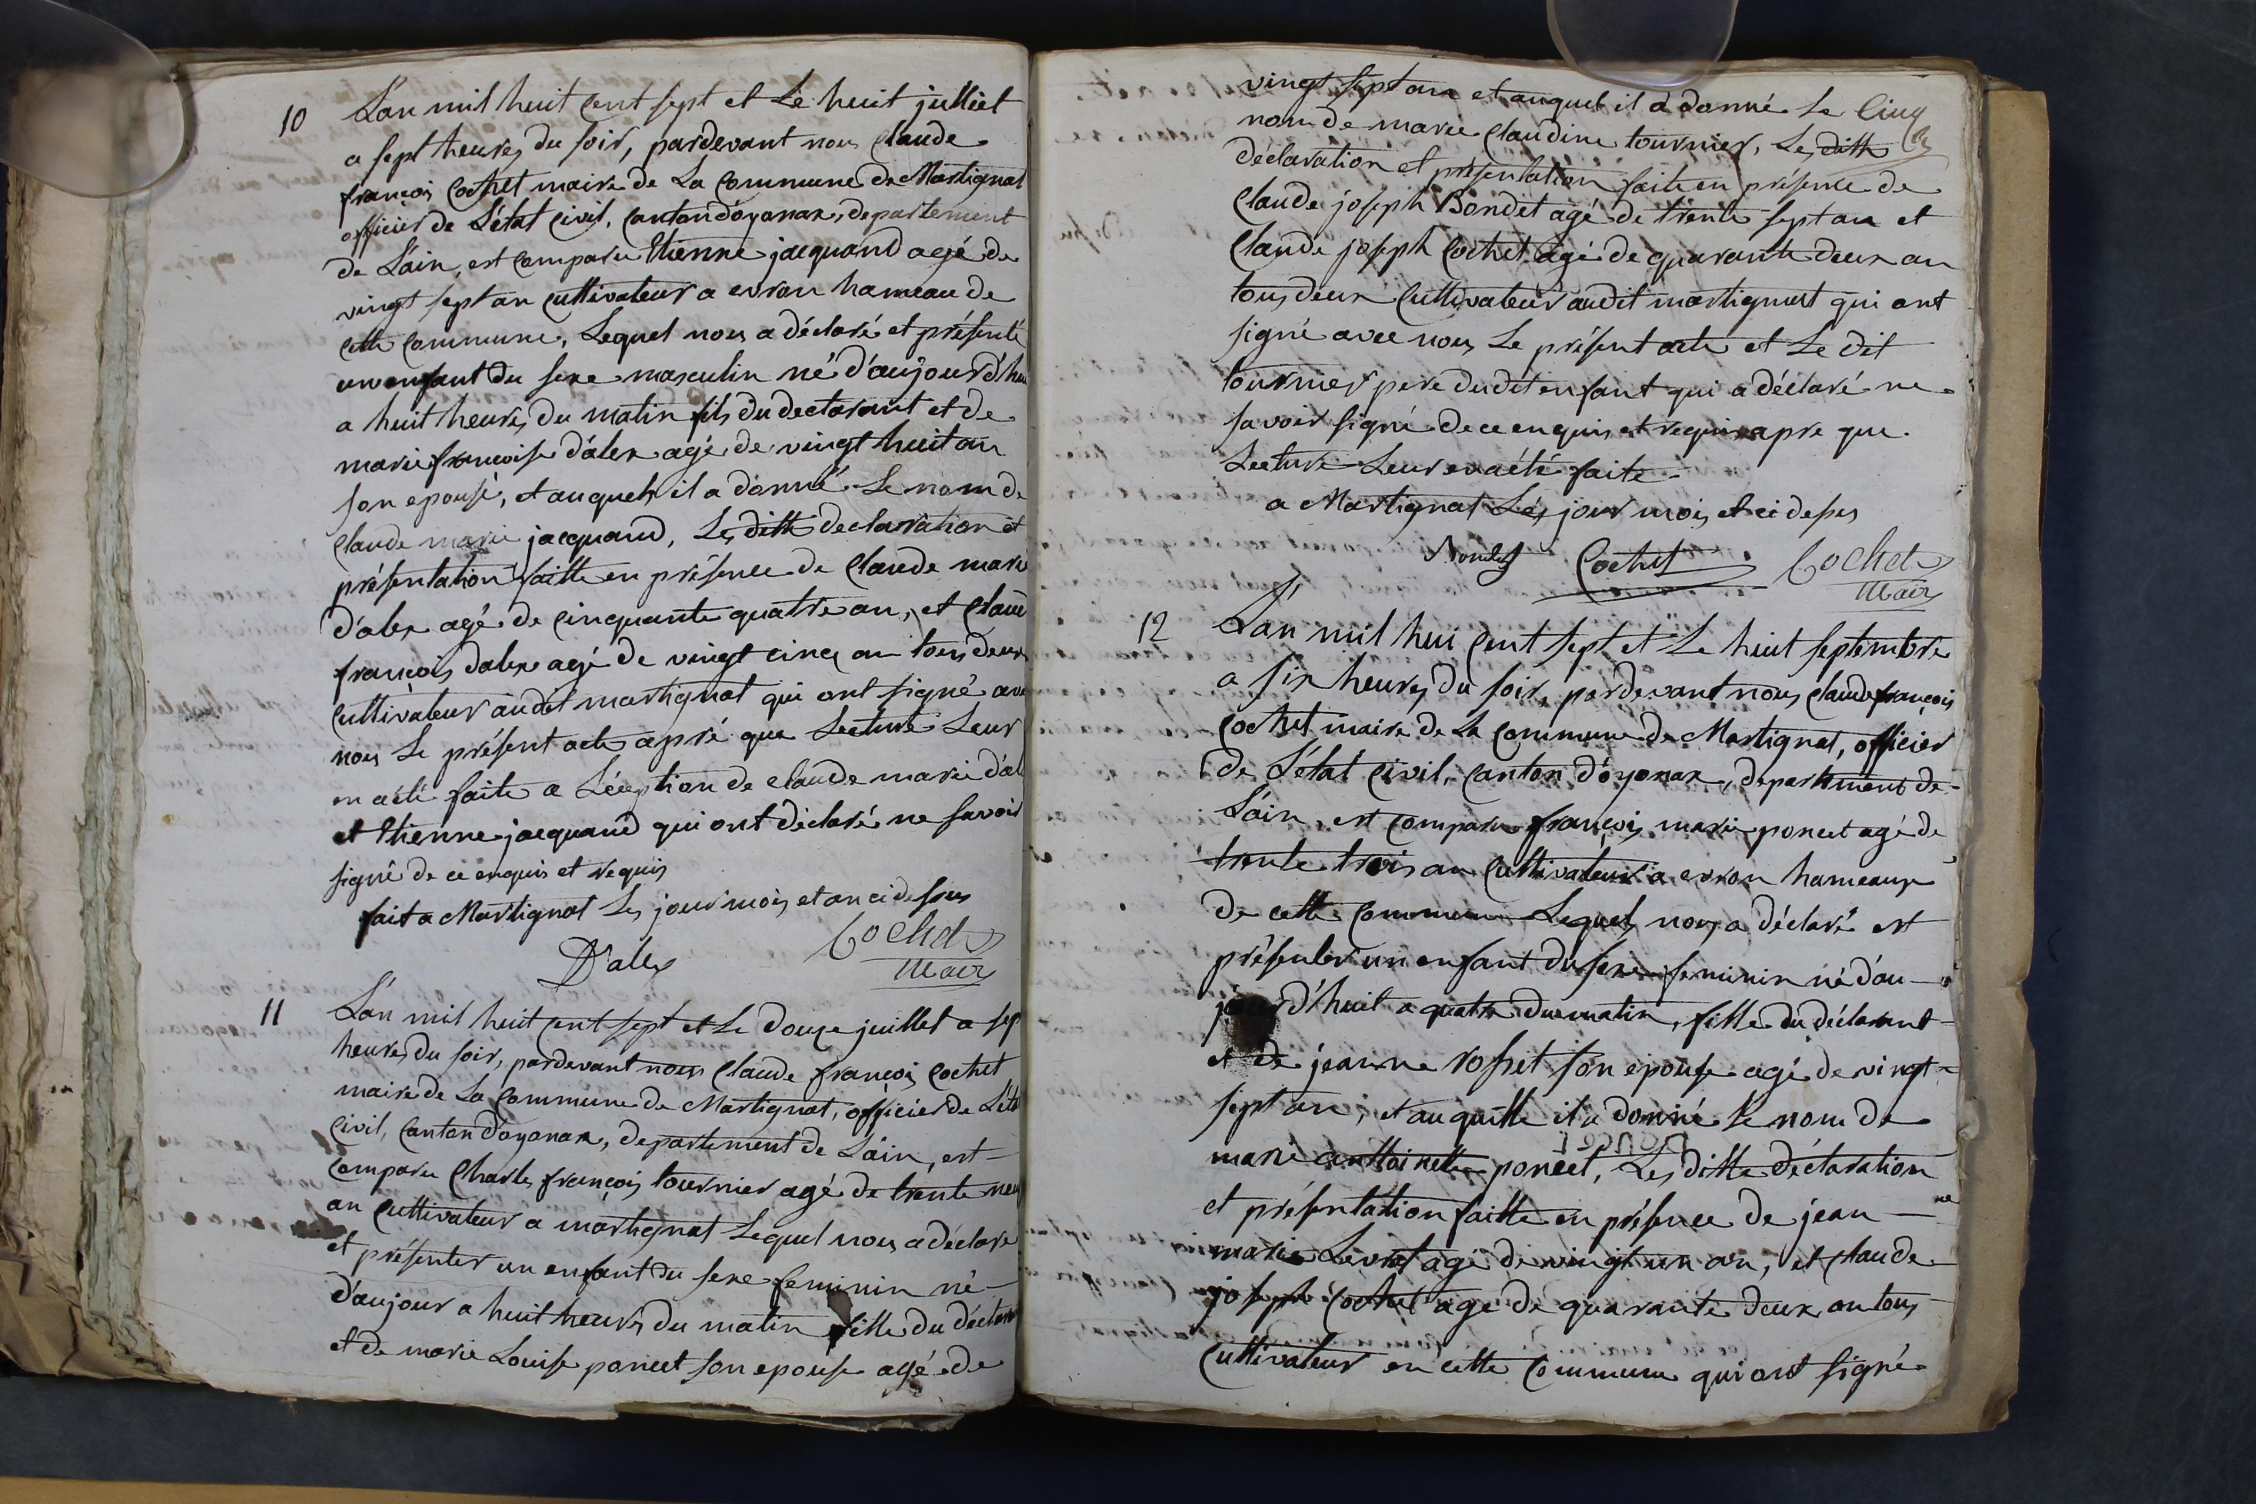 10 L'an mil huit cent sept et Le huit julliet
a sept heures du soir, pardevant nous Claude
françois Cochet maire de La Commune de Martignat
officier de L'état Civil, Canton d'oyonax, departement
de L'ain, est Comparu Etienne jacquand agé de
vingt sept an Cultivateur a evron hameau de
cette Commune, Lequel nous a déclaré et présenté
un enfant du sexe masculin né d'aujourd'hui
a huit heures du matin fils du declarant et de
marie françoise d'alex agé de vingt huit an
son epouse, et auquels il a donné Le nom de
Claude marie jacquand, Les ditte declaration et
présentation faitte en présence de Claude marie
d'alex agé de Cinquante quatre an, et Claude
françois dalex agé de vingt cinq an tous deux
Cultivateur audit martignat qui ont signé avec
nous Le présent acte apré que Lecture Leur
en a été faite a Léxeption de claude marie d'al
et Etienne jacquand qui ont déclaré ne savoir
signé de ce enquis et requis
fait a Martignat Les jour mois et an ci dessus
D'alex Cochet
Mair
11 L'an mil huit Cent sept et Le douze juillet a sep
heures du soir, pardevant nous Claude françois Cochet
maire de La Commune de Martignat, officier de L'éta
Civil, Canton d'oyonax, departement de L'ain, est
Comparu Charles françois tournier agé de trente neu
an Cultivateur a martignat Lequel nous a déclaré
et présenter un enfant du sexe feminin né
d'aujour a huit heures du matin fille du déclara
et de marie Louise poncet son epouse agé de
vingt sept an et auquel il a donné Le Cinq
nom de marie Claudine tournier, Les ditte
déclaration et présentation faite en présence de
Claude joseph Bondet agé de trente sept an et
Claude joseph Cochet agé de quarante deux an
tous deux Cultivateur audit martignat qui ont
signé avec nous Le présent acte et Le dit
tournier pere dudit enfant qui a déclaré ne
savoir signé de ce enquis et requis apre que
Lecture Leur en a été faite
a Martignat Les jour mois et ci desus
Bondet Cochet Cochet
Mair
12 L'an mil hui Cent sept et Le huit septembre
a six heures du soir, pardevant nous Claude françois
Cochet maire de La Commune de Martignat, officier
de L'état Civil, Canton d'oyonax, departement de
L'ain, est Comparu françois marie poncet agé de
trente trois an Cultivateur a evron hameaux
de cette Commune Lequel nous a déclaré et
présenter un enfant du sexe feminin né d'au
jourd'huit a quatre du matin, fille du déclarant
et de jeanne rosset son epouse agé de vingt
sept an, et auquelle il a donné Le nom de
marie anttoinette poncet, Les ditte déclaration
et présentation faitte en présence de jean
marie Levrat agé de vingt un an, et Claude
joseph Cochet agé de quarante deux an tous
Cultivateur en cette Commune qui ont signé